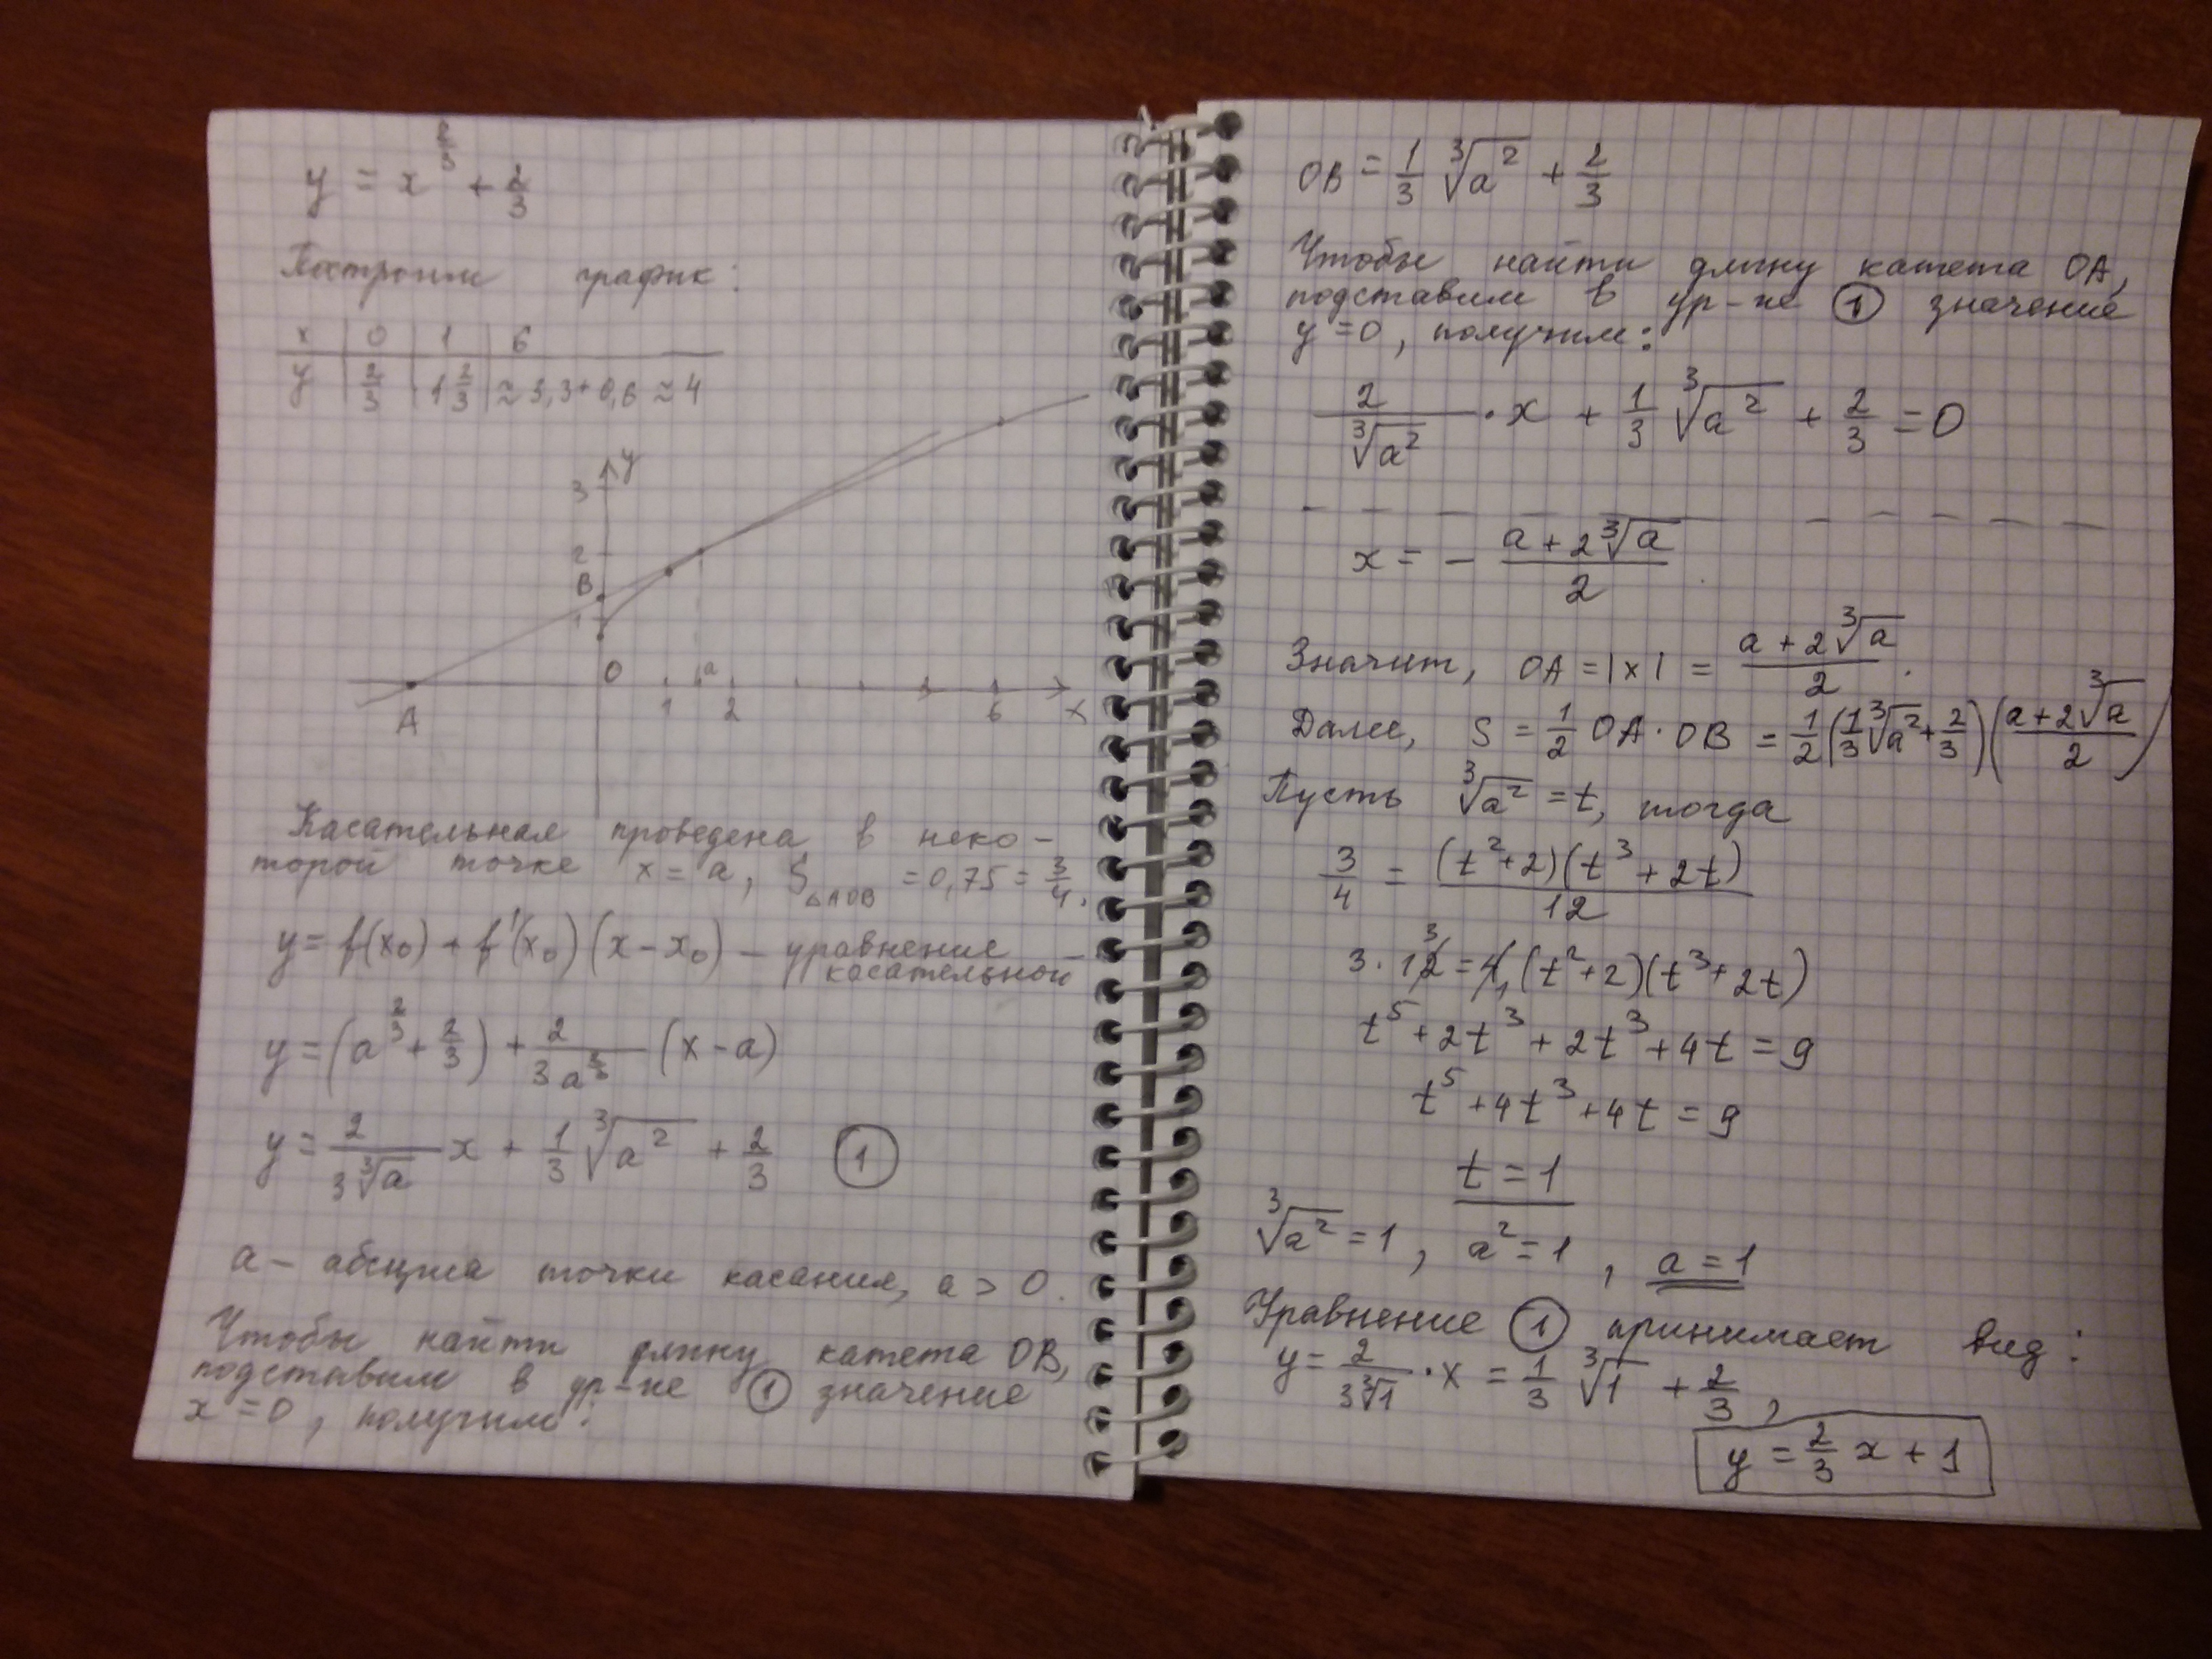 y = x^{2/3} + 2/3
Построим график:
x | 0 | 1 | 6
y | 2/3 | 1 2/3 | ≈ 3,3 + 0,6 ≈ 4
y
3
2
B
1
O
a
1
2
6
x
A
Касательная проведена в неко-
торой точке x = a, S_{△AOB} = 0,75 = 3/4.
y = f(x₀) + f'(x₀)(x - x₀) - уравнение
касательной
y = (a^{2/3} + 2/3) + 2/(3a^{3/3}) (x - a)
y = 2/(3∛a) x + 1/3 ∛(a²) + 2/3 ①
a - абсцисса точки касания, a > 0.
Чтобы найти длину катета OB,
подставим в ур-не ① значение
x = 0, получим:
OB = 1/3 ∛(a²) + 2/3
Чтобы найти длину катета OA,
подставим в ур-не ① значение
y = 0, получим:
2/∛(a²) · x + 1/3 ∛(a²) + 2/3 = 0
x = - (a + 2∛a)/2
Значит, OA = |x| = (a + 2∛a)/2.
Далее, S = 1/2 OA · OB = 1/2 (1/3 ∛(a²) + 2/3)((a + 2∛a)/2)
Пусть ∛(a²) = t, тогда
3/4 = (t² + 2)(t³ + 2t)/12
3 · 12 3 = 4 1 (t² + 2)(t³ + 2t)
t⁵ + 2t³ + 2t³ + 4t = 9
t⁵ + 4t³ + 4t = 9
t = 1
∛(a²) = 1, a² = 1, a = 1
Уравнение ① принимает вид:
y = 2/(3∛1) · x = 1/3 ∛1 + 2/3,
y = 2/3 x + 1